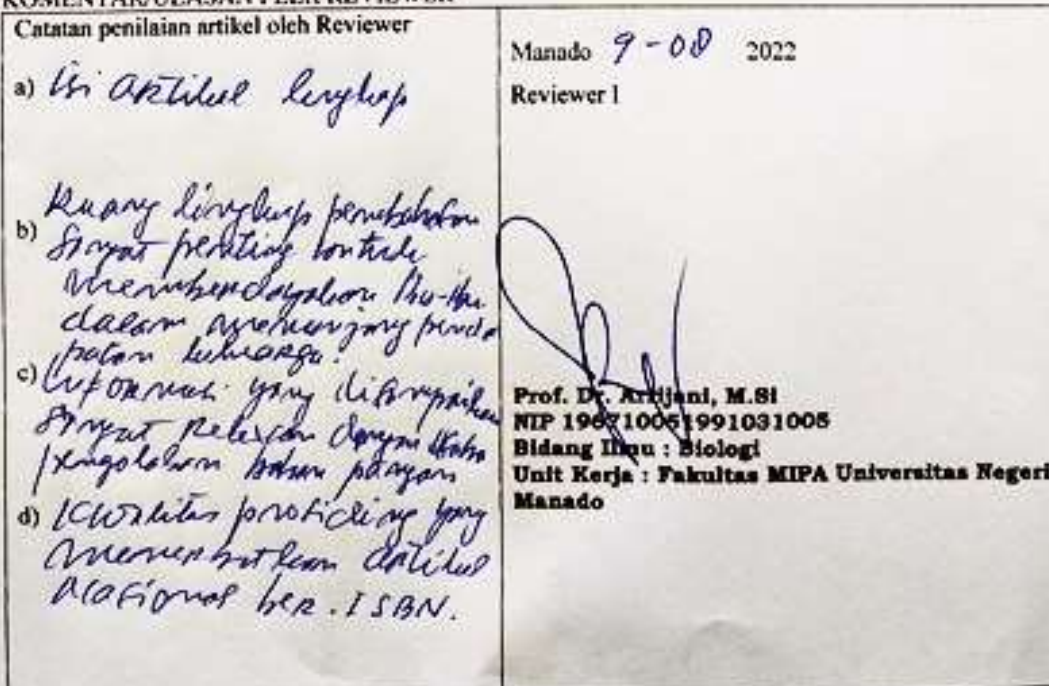 KOMENTAR/ULASAN PEER REVIEWER
Catatan penilaian artikel oleh Reviewer
a) Isi artikel lengkap
b) Ruang lingkup pembahasan
sangat penting untuk
memberdayakan Ibu-Ibu
dalam menunjang penda
patan keluarga.
c) Informasi yang disampaikan
sangat relevan dengan
pengolahan bahan pangan
d) Kwalitas prosiding yang
menerbitkan artikel
Nasional ber. ISBN.
Manado 9-08 2022
Reviewer 1
Prof. Dr. Arrijani, M.Si
NIP 196710051991031005
Bidang Ilmu : Biologi
Unit Kerja : Fakultas MIPA Universitas Negeri
Manado